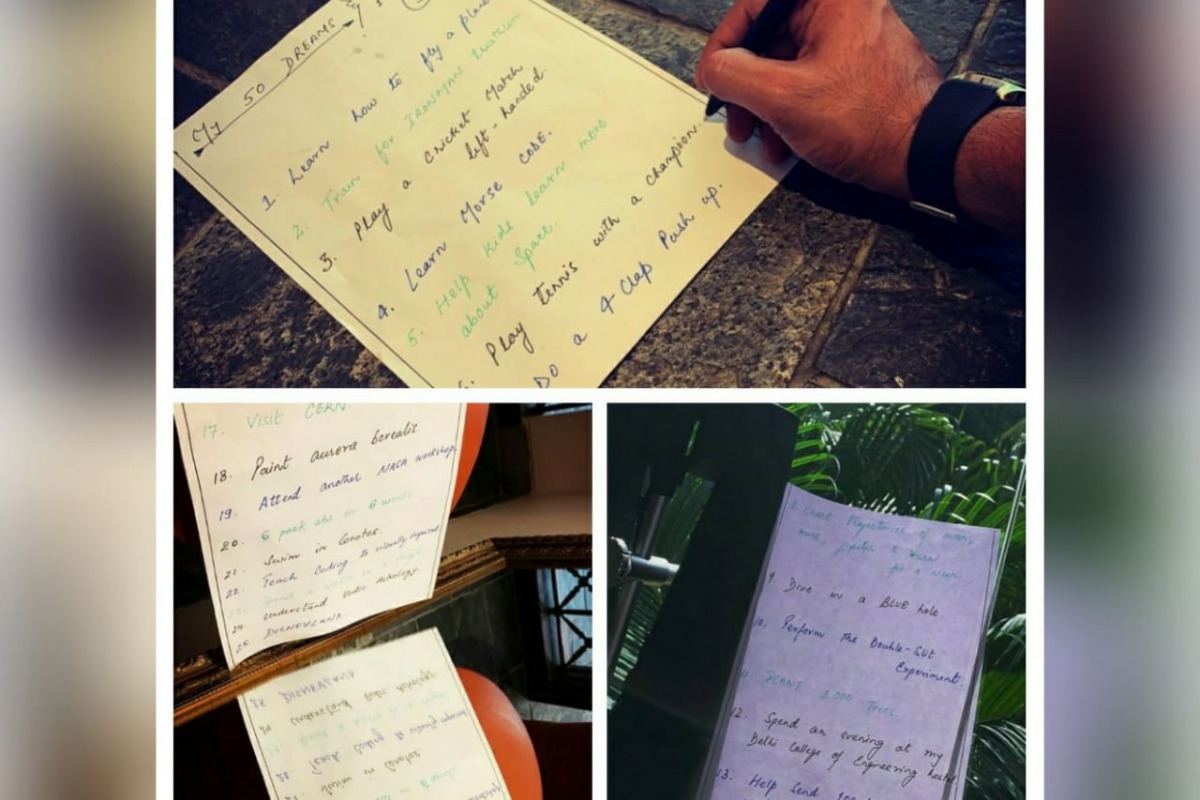 My 50 DREAMS
1. Learn how to fly a plane
2. Train for IRONMAN triathlon
3. Play a cricket Match
left-handed
4. Learn Morse CODE.
5. Help kids learn more
about Space.
6. Play tennis with a champion.
DO a 4 Clap Push up.
17. Visit CERN.
18. Paint aurora borealis.
19. Attend another NASA workshop
20. 6 pack abs in 6 weeks
21. Swim in Cenotes.
22. Teach Coding to visually impaired
23. in a
24. Understand Vedic Astrology.
25. DISNEYLAND.
8. Chart trajectories of moon,
mars, jupiter & Saturn
for a week
9. Dive in a BLUE hole.
10. Perform The Double-Slit
Experiment.
11. PLANT 1000 Trees
12. Spend an evening at my
Delhi College of Engineering hostel
13. Help Send